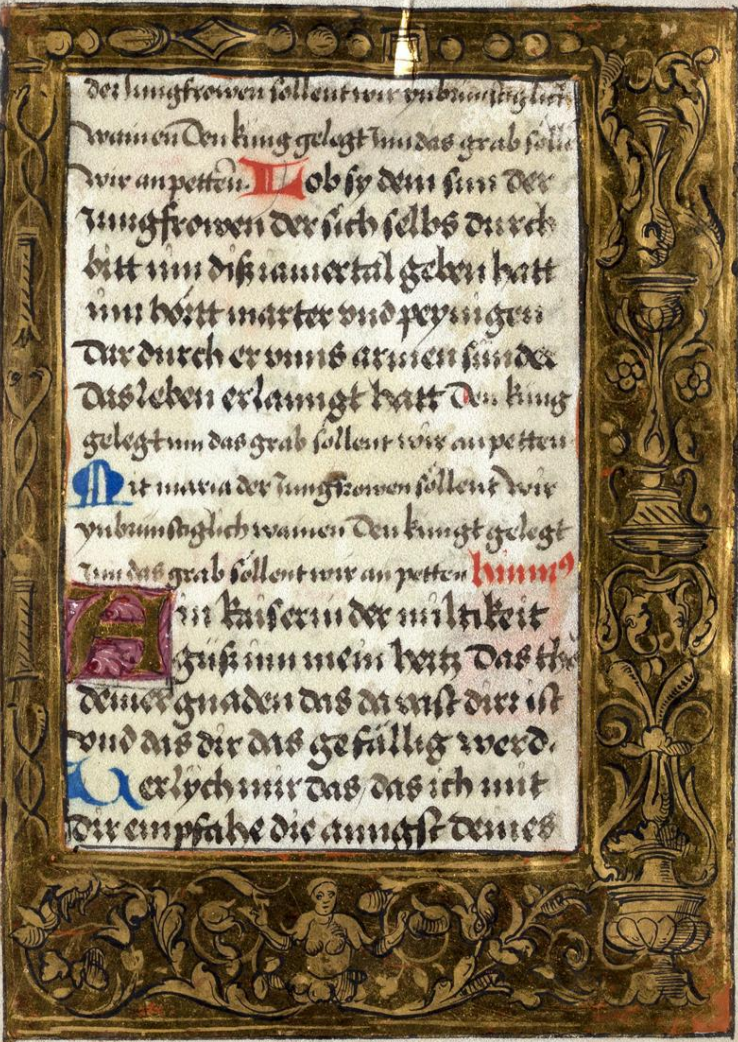 der Jungfrowen söllent wir ynbrünstiglich
wainen Den küng gelegt Inn das grab sölle
wir an petten. Lob sy dem sun der
Jungfrowen der sich selbs durch
bitt inn diß iamertal geben hatt
inn hörtt marter vnd peynigen
Dar durch er vnns armen sünder
das leben erlanngt hatt Den küng
gelegt inn das grab söllent wir an petten
Mit maria der Jungfrowen söllent wir
ynbrünstiglich wainen Den küngt gelegt
Inn das grab söllent wir an petten himn9
Ain kaiserin der miltikeit
güß inn mein hertz Das
deiner gnaden das da waist dirr ist
vnd das dir das gefällig werd.
Verlych mir das das ich mit
dir empfahe die anngst deines